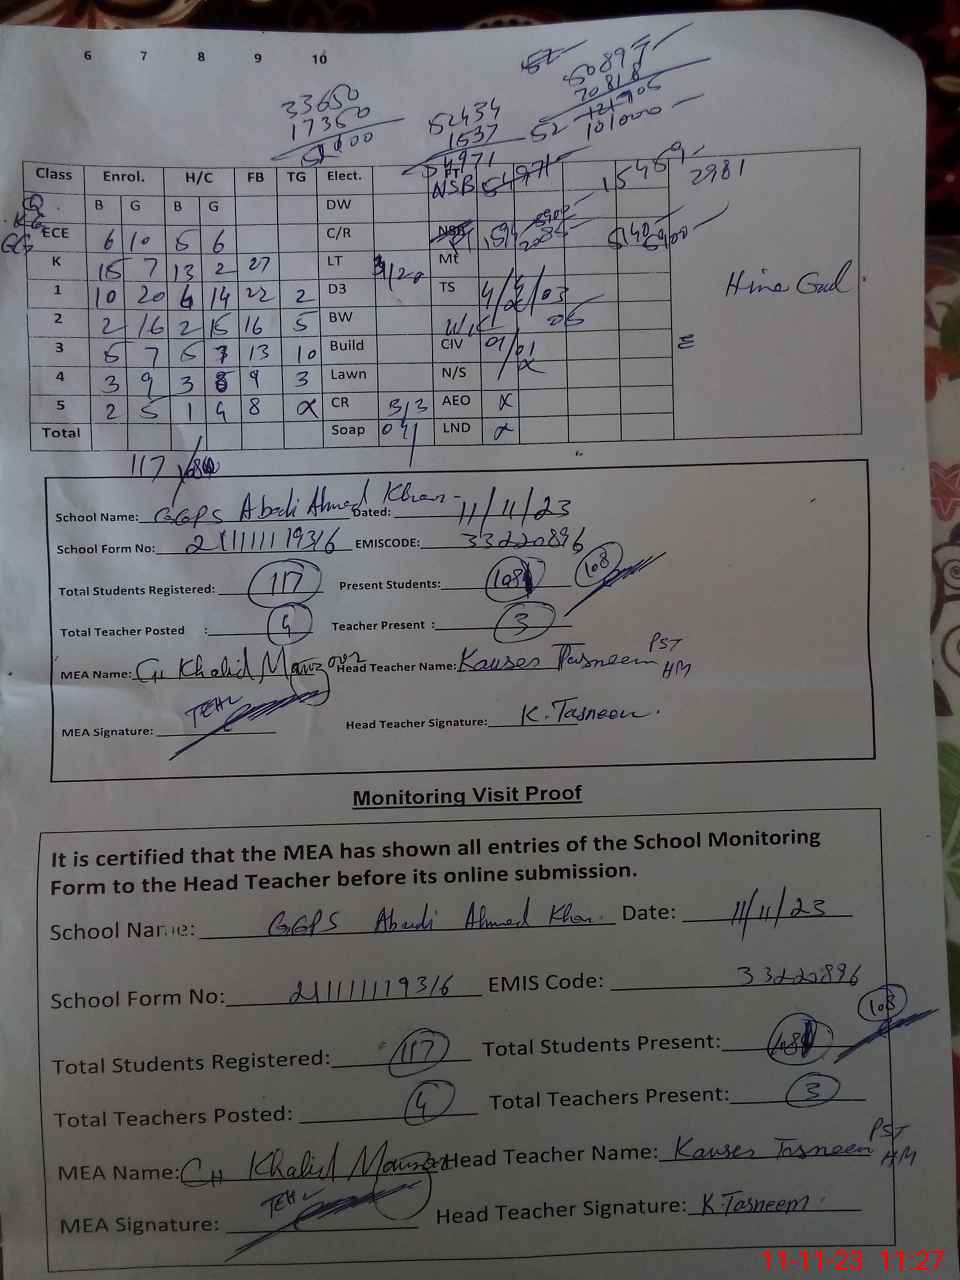 6 7 8 9 10
33650
17350
52434
1537
50897
70818
121906
101000
52
54971
Class Enrol. H/C FB TG Elect. FTF
NSB 54971 15459 2981
B G B G DW
ECE 6 10 5 6 C/R
K 15 7 13 2 27 LT Mt
1 10 20 14 22 2 D3 TS
2 2 16 2 15 16 5 BW
3 5 7 5 7 13 10 Build CIV 01/01
4 3 9 3 8 9 3 Lawn N/S
5 2 5 1 4 8 CR 3/3 AEO
Total Soap LND
Hina Gul
117
School Name: GGPS Abadi Ahmed Khan Dated: 11/11/23
School Form No: 21111119316 EMISCODE: 33220896
Total Students Registered: 117 Present Students: 108 108
Total Teacher Posted : 4 Teacher Present : 3
MEA Name: Ch Khalid Manzoor Head Teacher Name: Kauser Tasneem PST HM
MEA Signature: Head Teacher Signature: K. Tasneem.
Monitoring Visit Proof
It is certified that the MEA has shown all entries of the School Monitoring
Form to the Head Teacher before its online submission.
School Name: GGPS Abadi Ahmed Khan Date: 11/11/23
School Form No: 21111119316 EMIS Code: 33220896
Total Students Registered: 117 Total Students Present: 108
Total Teachers Posted: 4 Total Teachers Present: 3
MEA Name: CH Khalid Manzoor Head Teacher Name: Kauser Tasneem PST HM
MEA Signature: Head Teacher Signature: K.Tasneem
11-11-23 11:27